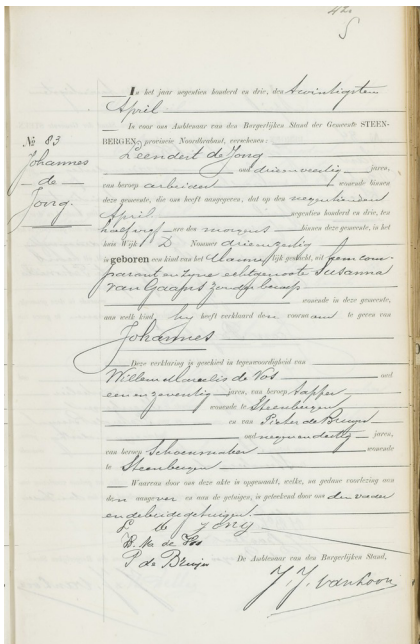 In het jaar negentien honderd en drie, den twintigsten
April
is voor ons Ambtenaar van den Burgerlijken Stand der Gemeente STEEN-
BERGEN, provincie Noordbrabant, verschenen:
No 83
Johannes
de
Jong.
Leendert de Jong
oud drie en veertig jaren,
van beroep arbeider woonende binnen
deze gemeente, die ons heeft aangegeven, dat op den negentienden
April negentien honderd en drie, ten
half ure des morgens binnen deze gemeente, in het
huis Wijk D Nommer drie en zestig
is geboren een kind van het Mannelijk geslacht, uit hem com-
parant en zyne echtgenoote Susanna
van zonder beroep
woonende in deze gemeente,
aan welk kind hy heeft verklaard den voornaam te geven van
Johannes
Deze verklaring is geschied in tegenwoordigheid van
Willem Marcelis de Vos oud
een en zeventig jaren, van beroep tapper
woonende te Steenbergen
en van Pieter de Bruijn
oud negen en dertig jaren,
van beroep Schoenmaker woonende
te Steenbergen
Waarvan door ons deze akte is opgemaakt, welke, na gedane voorlezing aan
den aangever en aan de getuigen, is geteekend door ons den vader
en de beide getuigen.
L de Jong
W. M. de Vos
P de Bruijn
De Ambtenaar van den Burgerlijken Stand,
J. J. van Loon